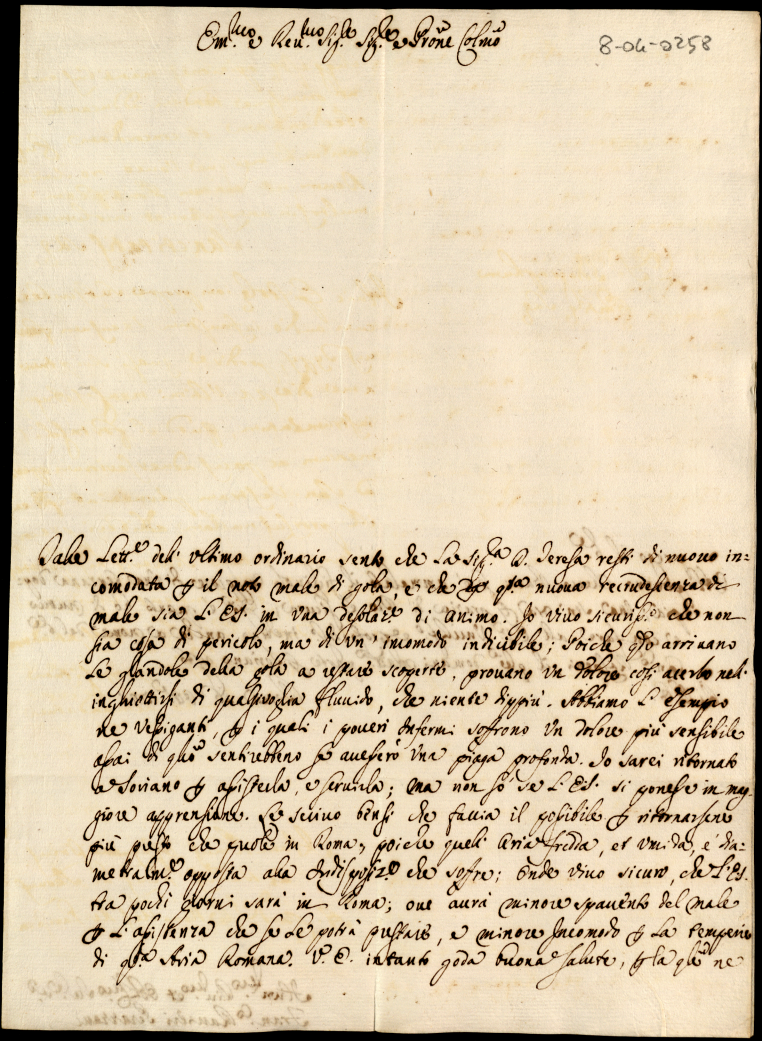 Em.mo e Reu.mo Sig.re Sig.re e Prōne Colmō
8-04-0258
Dalle Lett.e dell' vltimo ordinario sento che La Sig.ra D. Teresa resti di nuouo in=
comodata ꝑ il noto male di gola, e che ꝑ q.sta nuoua recrudescenza di
male sia L'E.S. in vna desolaz.e di animo. Io viuo sicuriss.o che non
sia cosa di pericolo, ma di vn' incomodo indicibile; Poiche q.do arriuano
Le glandole della gola a restare scoperte, prouano vn dolore così acerbo nell'
inghiottirsi di qualsiuoglia fluuido, che niente dippiù. Abbiamo L'esempio
ne Vessiganti, ꝑ i quali i poueri Infermi soffrono vn dolore più sensibile
assai di quō sentirebbeno se auessero vna piaga profonda. Io sarei ritornato
a Soriano ꝑ assisterla, e seruirla; ma non sò se L'E.S. si ponesse in mag-
giore apprensione. Le scriuo bensì che faccia il possibile ꝑ ritornarsene
più presto che puole in Roma, poiche quell' Aria fredda, et vmida, è dia-
metralm.e opposta alla Indisposiz.e che soffre; Onde viuo sicuro, che L'E.S.
tra pochi giorni sarà in Roma; oue aurà minore spauento del male
ꝑ L'assistenza che se Le potrà prestare, e minore Incomodo ꝑ La temperie
di q.sta Aria Romana. V.E. intanto goda buona salute, ꝑ la q.le ne